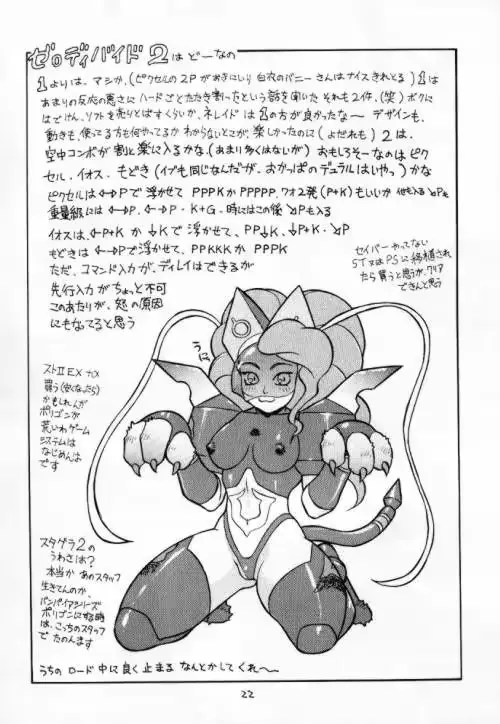 ゼロディバイド2はどーなの
1よりは、マシか、(ピクセルの2Pがおきにいり 白衣のバニーさんはナイスきれとる) 1は
あまりの反応の悪さにハードごとたたき割ったという話を聞いた それも2件、(笑) ボクに
はでけん、ソフトを売りとばすくらいか、ネレイドは1の方が良かったな〜 デザインも、
動きも、使ってる方も何やってるか わからないとこが、楽しかったのに(よだれも) 2は、
空中コンボが割と楽に入るかな、(あまり多くはないが) おもしろそーなのはピク
セル、イオス、もどき(イブも同じなんだが、おかっぱのデュラルはいやっ)かな
ピクセルは←→Pで浮かせて PPPKか PPPPP、ワオ2発(P+K)もいいか 他も入る↘Pも
重量級には←→P、←→P・K+G、時にはこの後 ↘Pも入る
イオスは、←P+K か ↓K で浮かせて、PP↓K、↓P+K・↘P
もどきは ←→Pで浮かせて、PPKKKか PPPK
ただ、コマンド入力が、ディレイはできるが
先行入力がちょっと不可
このあたりが、怒の原因
にもなってると思う
セイバーやってない
ST又はPSに移植され
たら買うと思うが、クリア
できんと思う
うに
ストII EX +α
買う(安くなったら)
かもしれんが
ポリゴンが
荒いわゲーム
システムは
なじめんは
です
スタグラ2の
うわさは?
本当か あのスタッフ
生きてんのか、
バンパイアシリーズ
ポリゴンにする時
は、こっちのスタッフ
で たのんます
うちの ロード 中に良く止まる なんとかしてくれ〜
22